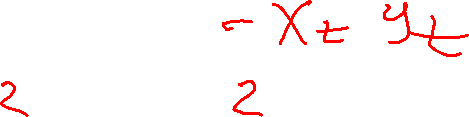 - X t y t
2 2